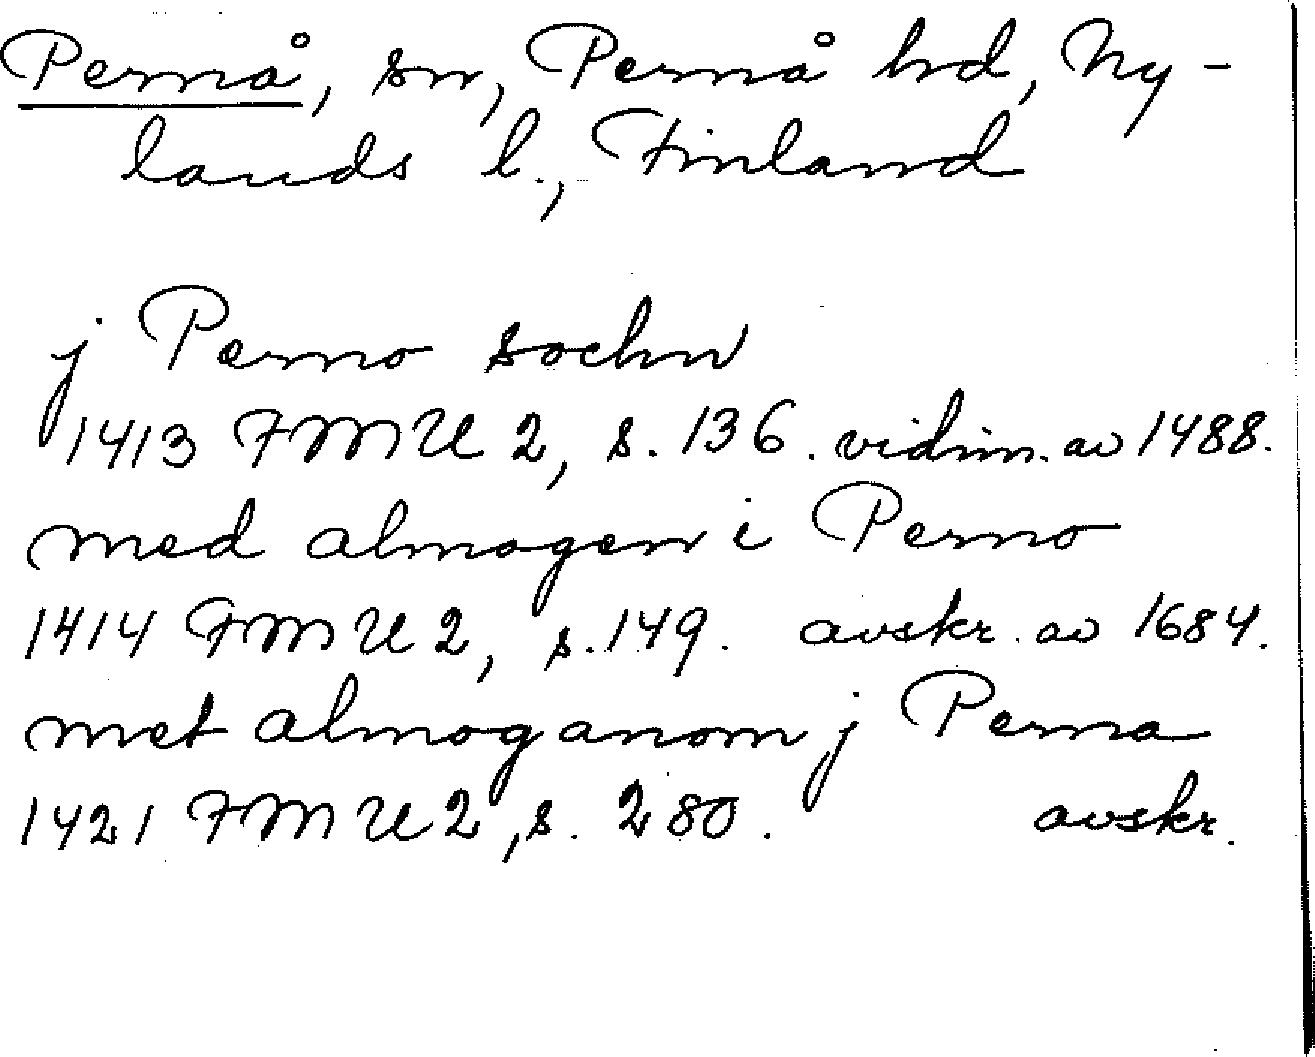 Pernå, sn, Pernå hd, Ny-
lands l., Finland
j Perno sochn
1413 FMU 2, s. 136. vidim. av 1488.
med almogen i Perno
1414 FMU 2, s. 149. avskr. av 1684.
met almoganom j Perna
1421 FMU 2, s. 280. avskr.